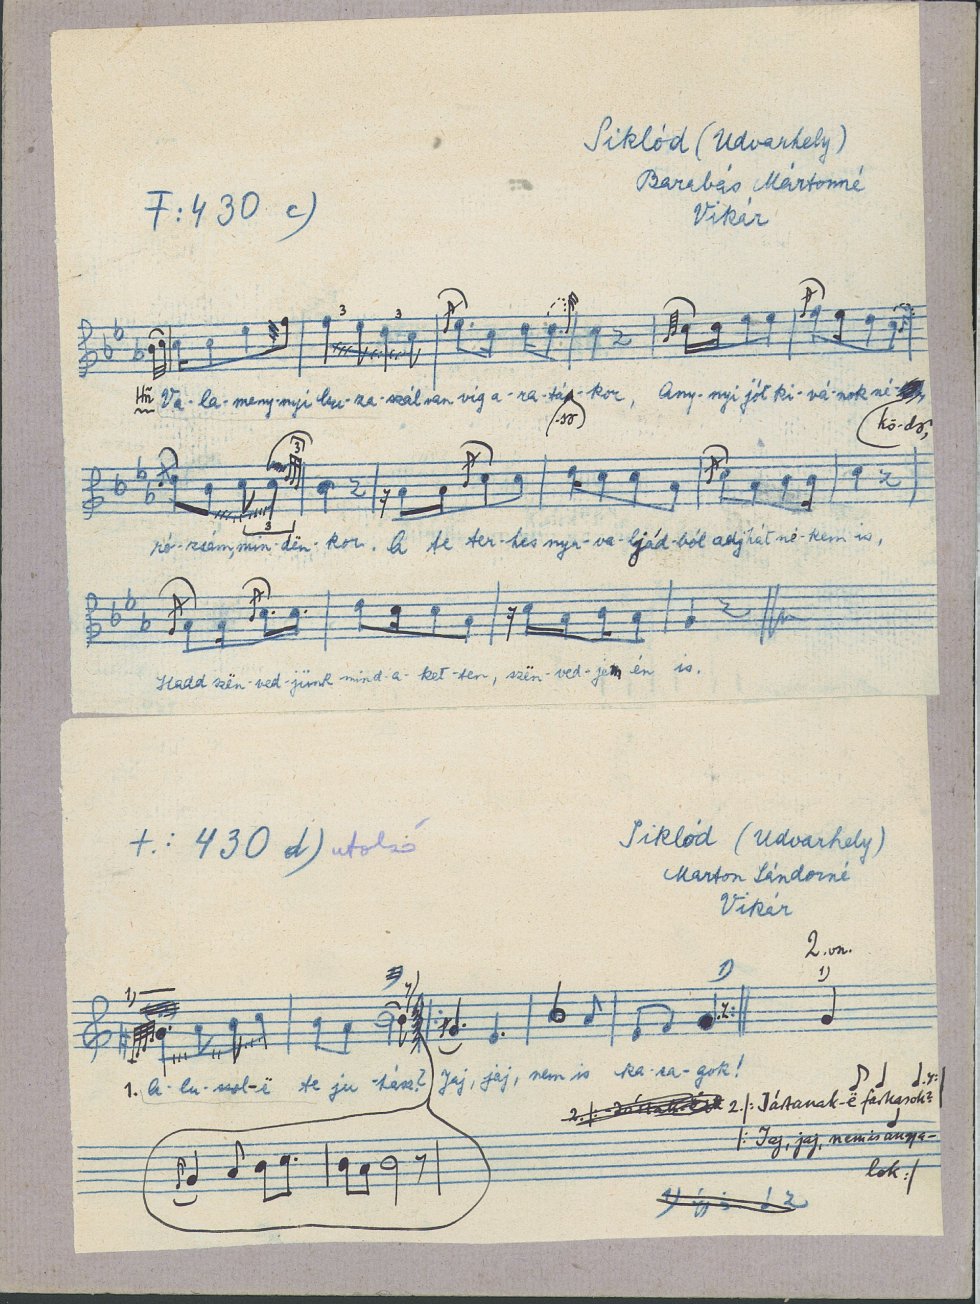 Siklód (Udvarhely)
Barabás Mártonné
Vikár
F: 430 c)
Va-la-meny-nyi bú-za-szál van víg a-ra-tás-kor, Any-nyi jót ki-vá-nok né-
(kö-də,
ró-zsám, min-dën-kor. A te ter-hes nya-va-ljád-ból adjhát né-kem is,
Hadd szën-ved-jünk mind a-ket-ten, szën-ved-jem én is.
t.: 430 d) utolsó
Siklód (Udvarhely)
Marton Sándorné
Vikár
2. vn.
1)
1)
1)
1. A-lu-szol-ë te ju-hász? Jaj, jaj, nem is ka-ra-gok!
2. |: Jástanak-ë farkasok?
|: Jaj, jaj, nem is annya-
lok :|